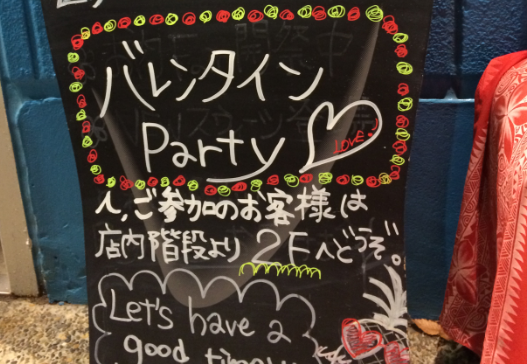 バレンタイン
Party
LOVE!
へ、ご参加のお客様は
店内階段より 2Fへどうぞ。
Let's have a
good time